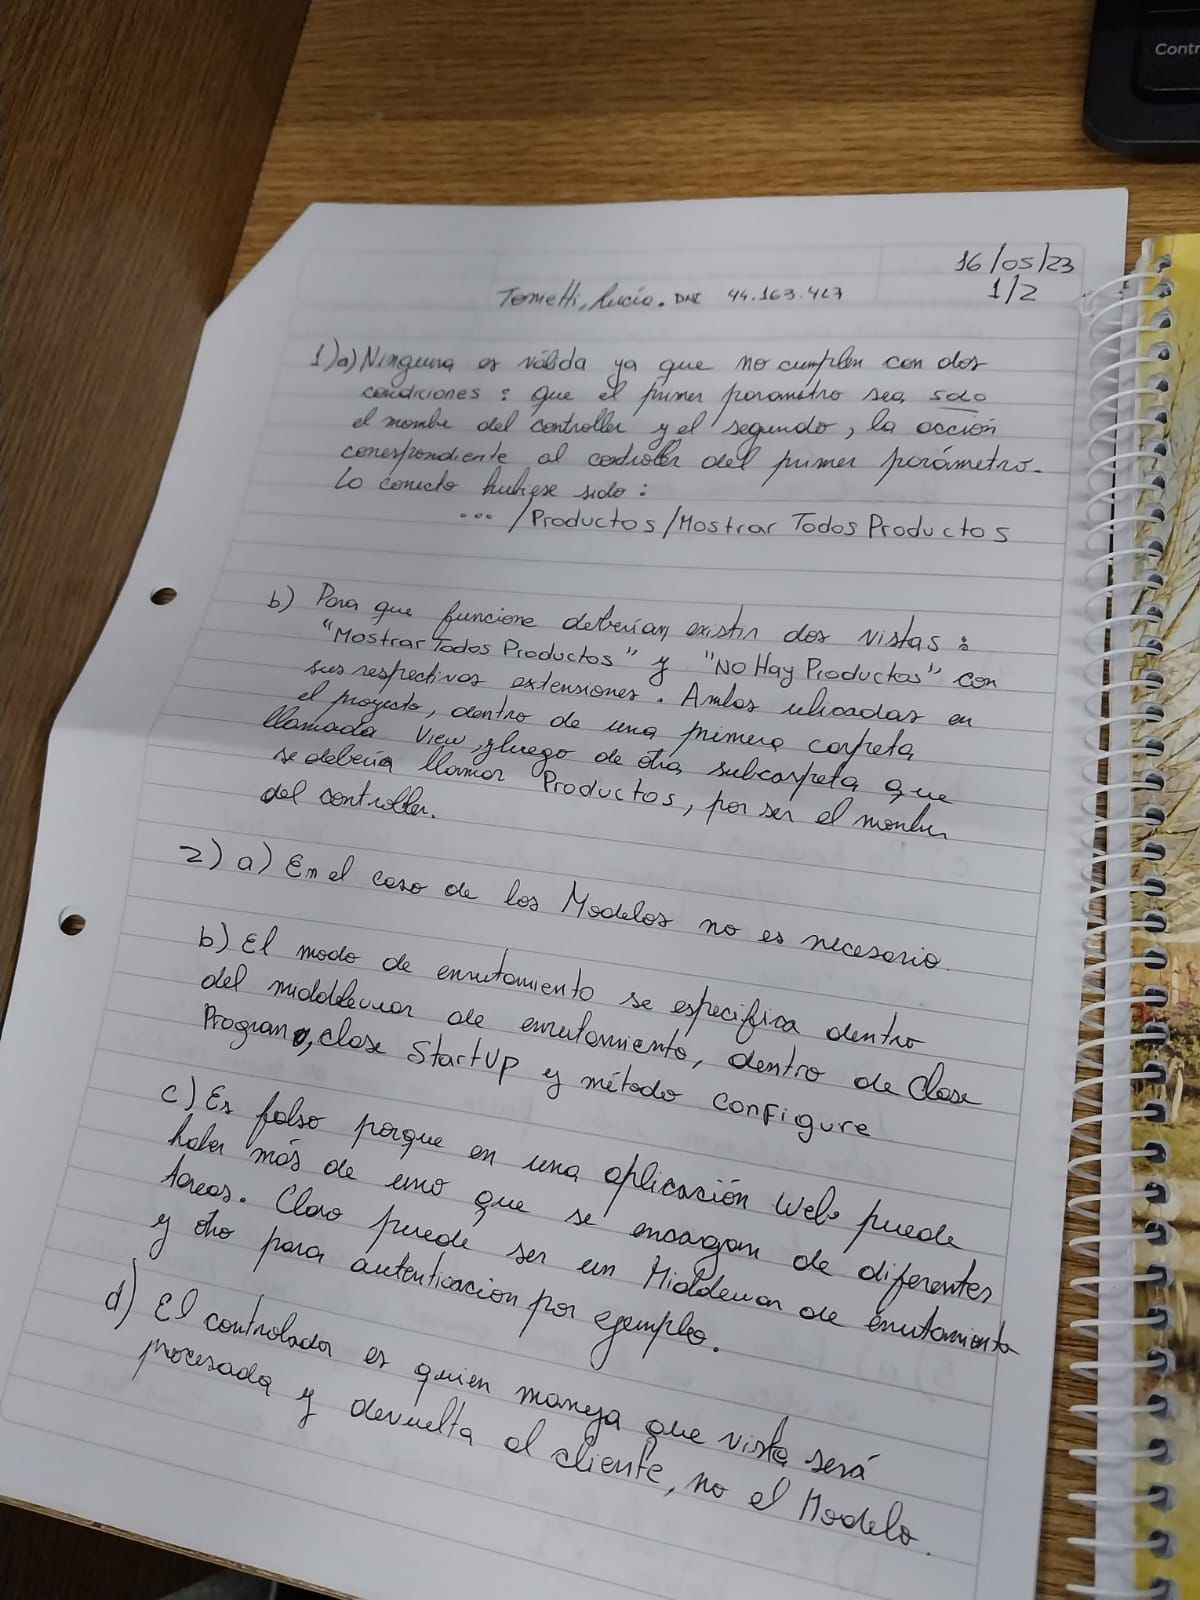 Contr
16/05/23
1/2
Tometti, Lucio. DNI 44.163.427
1) a) Ninguna es válida ya que no cumplen con dos
condiciones: que el primer parametro sea solo
el nombre del controller y el segundo, la acción
correspondiente al controller del primer parámetro.
Lo correcto hubiese sido:
... /Productos/Mostrar Todos Productos
b) Para que funcione deberían existir dos vistas:
"Mostrar Todos Productos" y "No Hay Productos" con
sus respectivas extensiones. Ambas ubicadas en
el proyecto, dentro de una primera carpeta
llamada View, y luego de otra subcarpeta que
se debería llamar Productos, por ser el nombre
del controller.
2) a) En el caso de los Modelos no es necesario.
b) El modo de enrutamiento se especifica dentro
del middlewar de enrutamiento, dentro de clase
Program o, clase StartUp y método configure
c) Es falso porque en una aplicación Web puede
haber más de uno que se encargan de diferentes
tareas. Claro puede ser un Middlewar de enrutamiento
y otro para autenticacion por ejemplo.
d) El controlador es quien maneja que vista será
procesada y devuelta al cliente, no el Modelo.